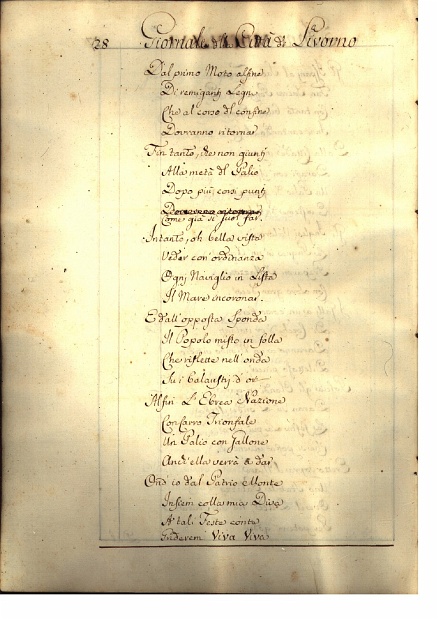 28 Giornale della Città di Livorno
Dal primo Moto alfine
Di remiganti Legni
Che al corso del confine
Dovranno ritornar
Fin tanto, che non giunti
Alla metà del Palio
Dopo più corsi punti
Come già si suol far.
Intanto, oh bella vista
Veder con ordinanza
Ogni Naviglio in Lista
Il Mare incoronar.
E dall'opposta Sponda
Il Popolo misto in folla
Che riflette nell'onda
Su i balausti d'or
Alfin L'Ebrea Nazione
Con Carro Trionfale
Un Palio con
Anch'ella verrà a dar
Ond'io dal Patrio Monte
Insiem colla mia Diva
A tali Feste conte
Viva Viva